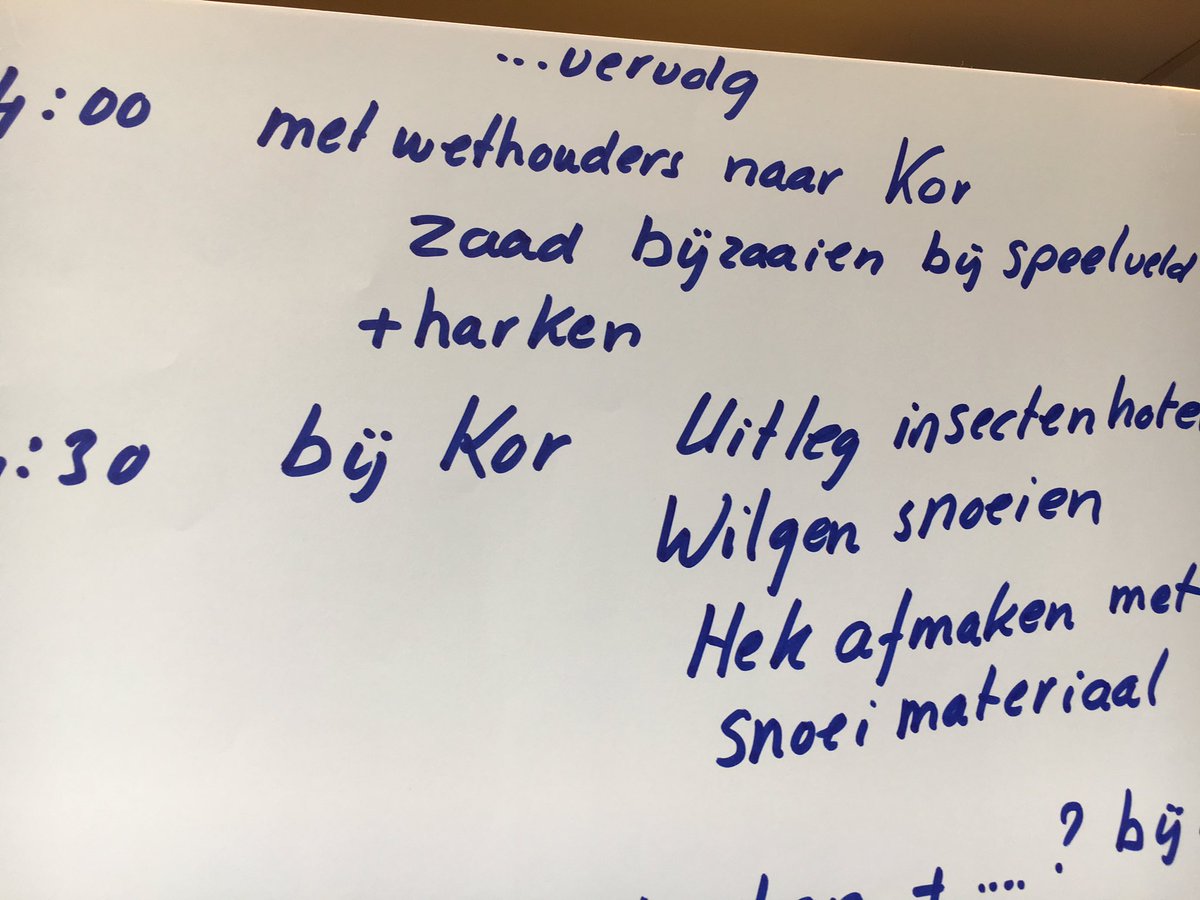 ...vervolg
:00 met wethouders naar Kor
zaad bijzaaien bij speelveld
+harken
:30 bij Kor Uitleg insectenhote
Wilgen snoeien
Hek afmaken met
snoei materiaal
+ ....? bij